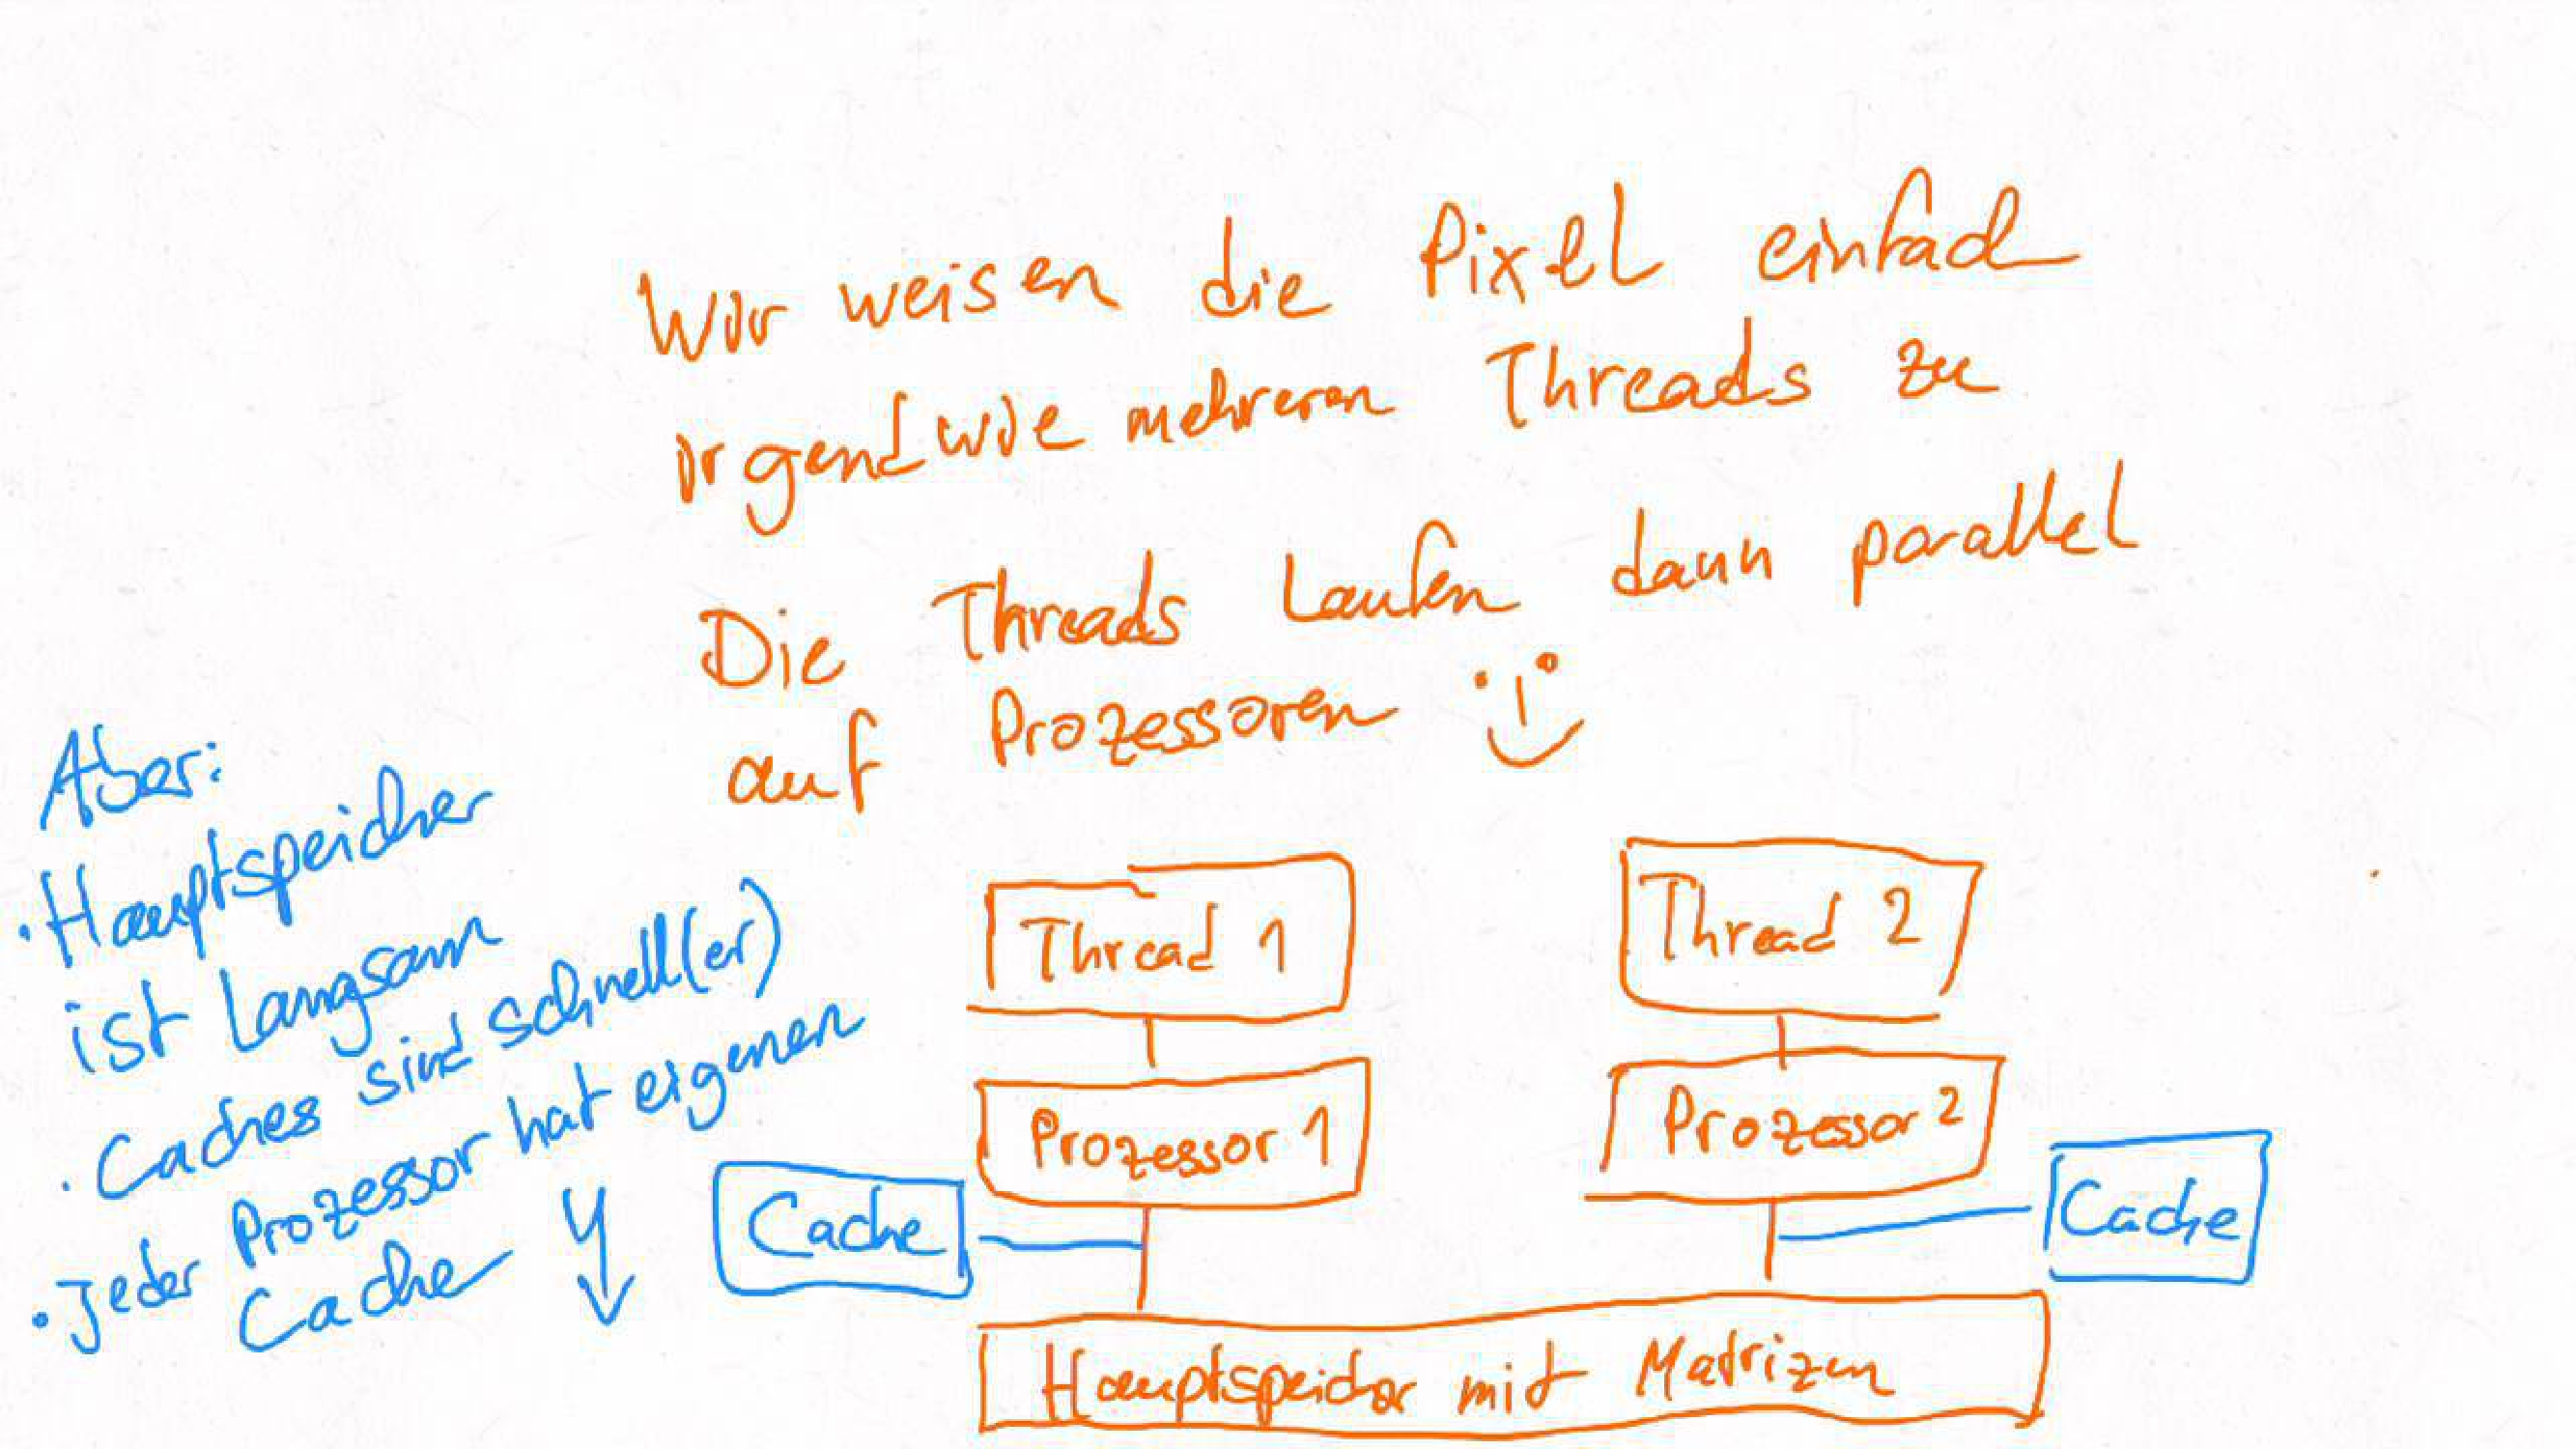 Wir weisen die Pixel einfach
irgendwie mehreren Threads zu
Die Threads laufen dann parallel
auf Prozessoren
Aber:
· Hauptspeicher
ist langsam
· Caches sind schnell(er)
· Jeder Prozessor hat eigenen
Cache
Thread 1
Thread 2
Prozessor 1
Prozessor 2
Cache
Cache
Hauptspeicher mit Matrizen